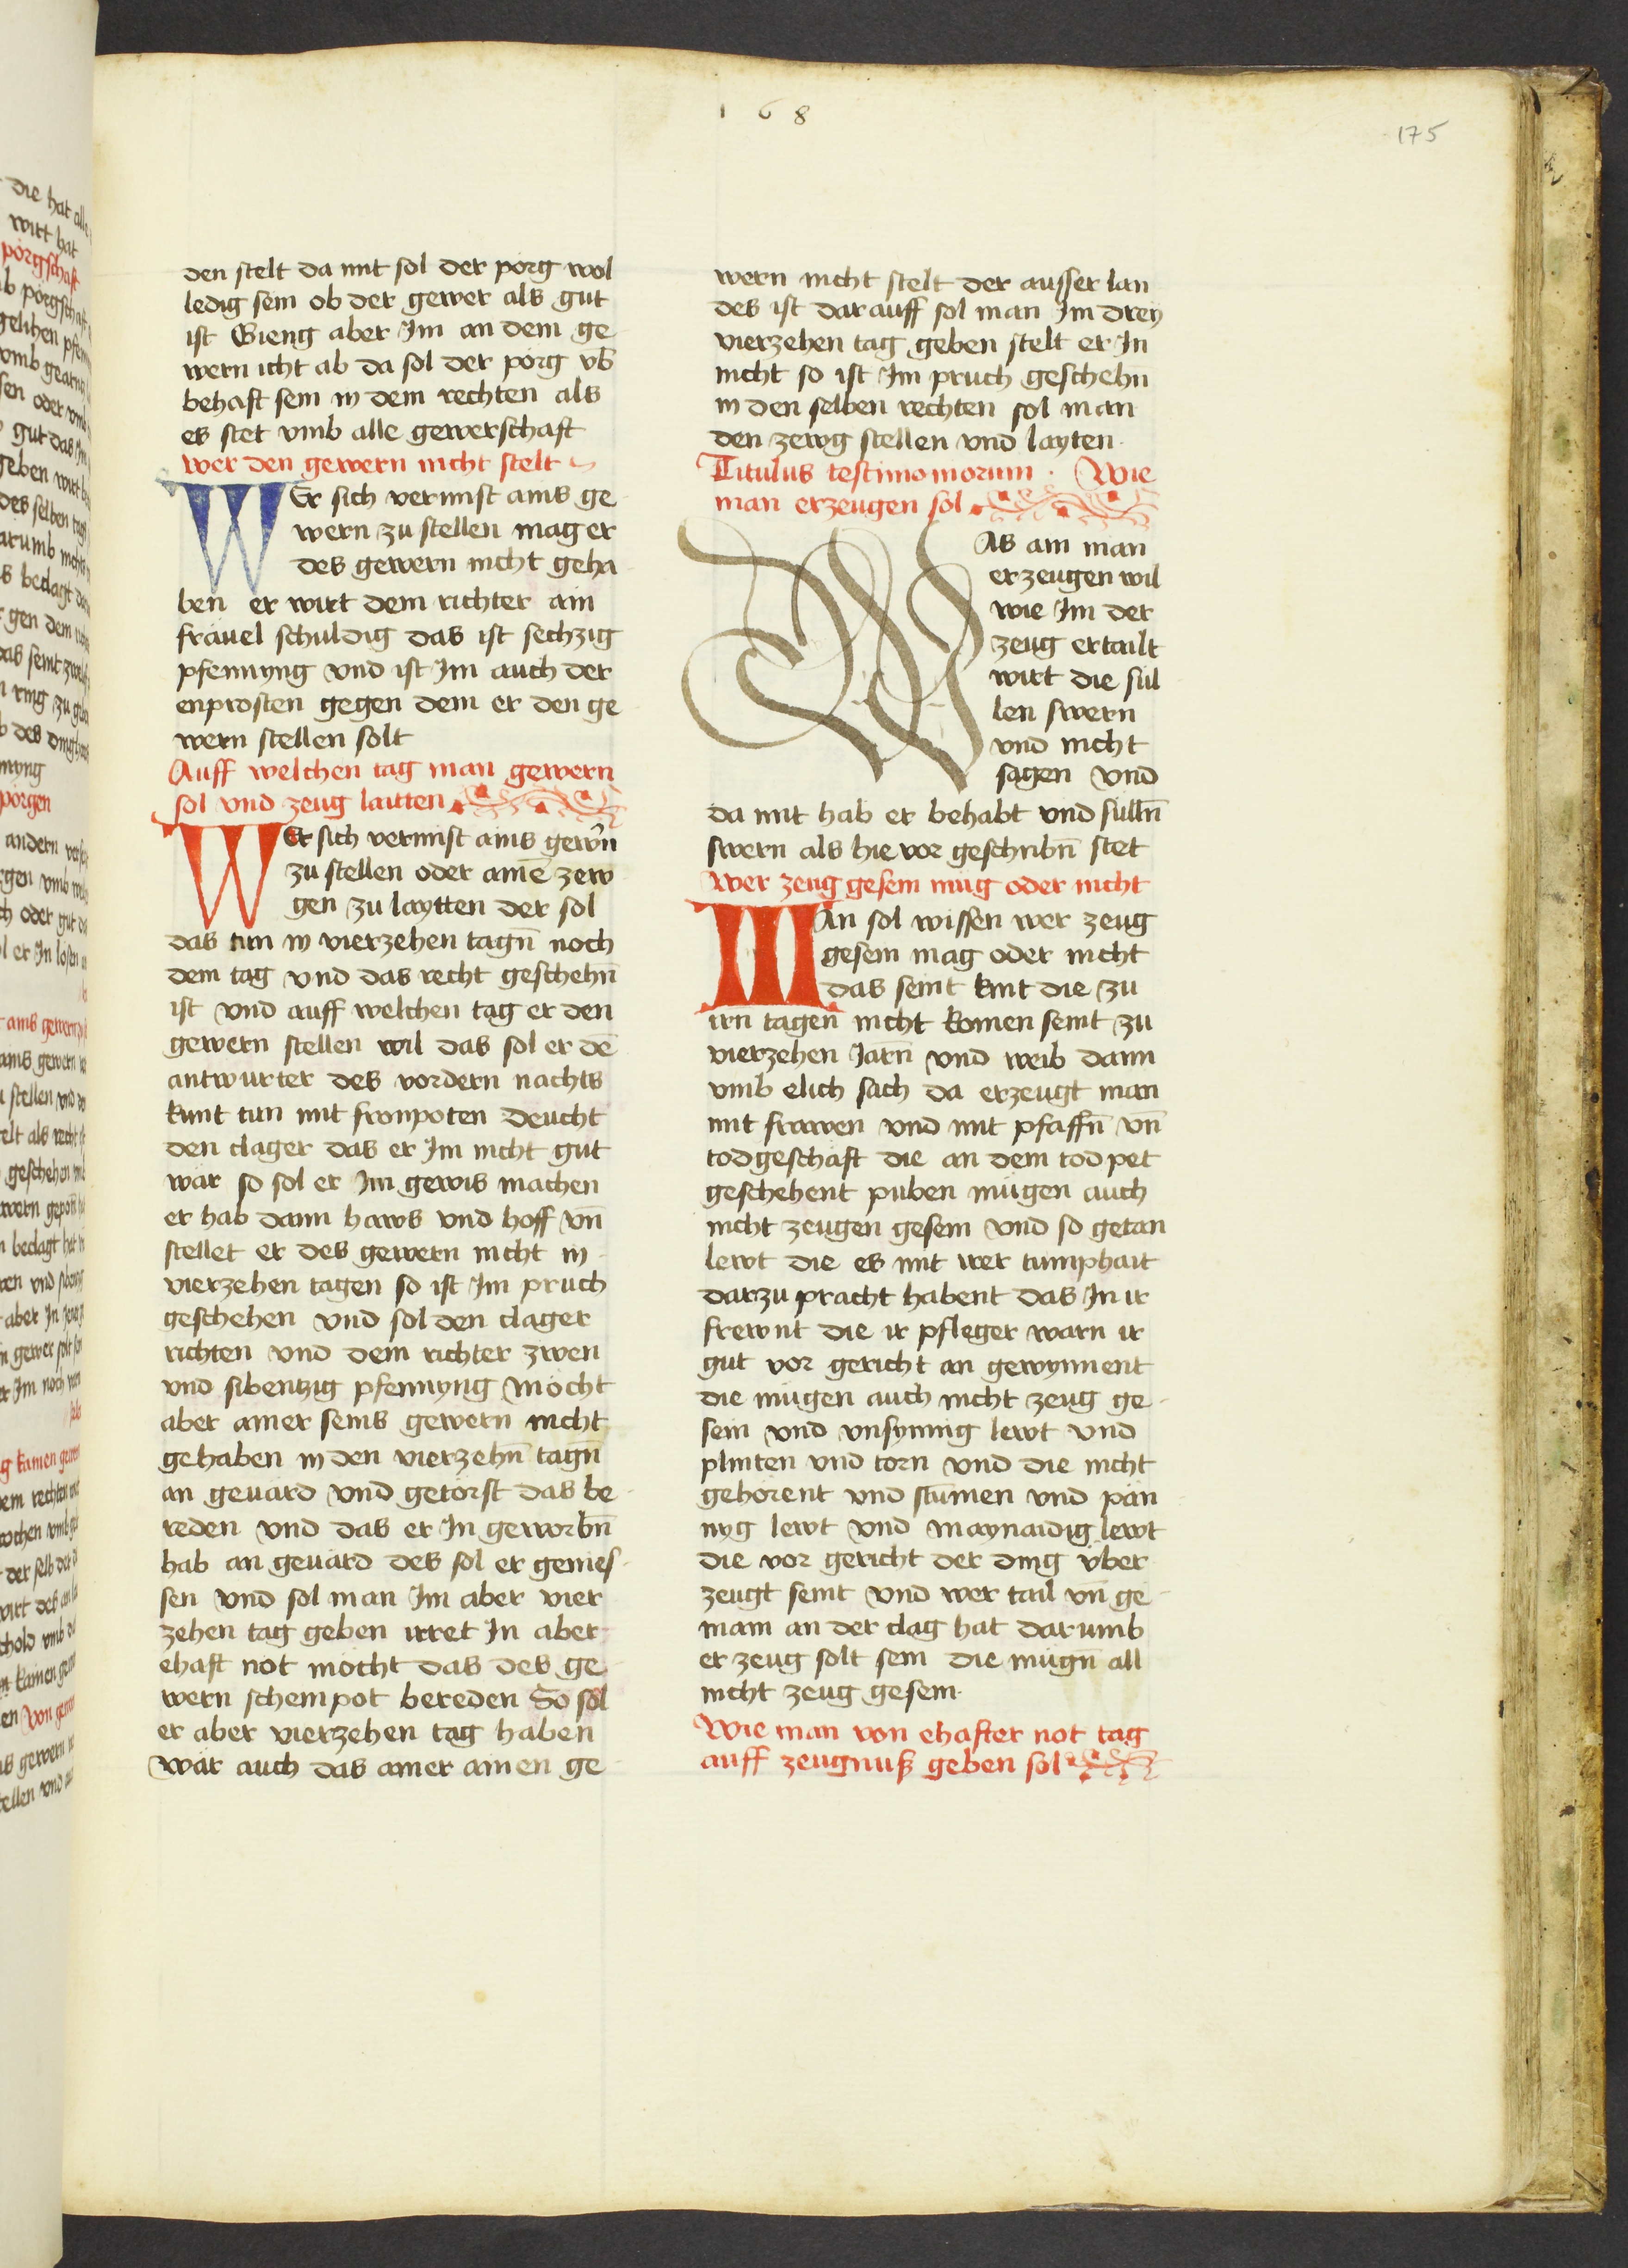 168
175
den stelt da mit sol der porg wol
ledig sein ob der gewer als gut
ist Gieng aber Im an dem ge
wern icht ab da sol der porg vb̄
behaft sein in dem rechten als
es stet vmb alle gewerschaft
wer den gewern nicht stelt
WEr sich vermist ains ge
wern zu stellen mag er
des gewern nicht geha
ben er wirt dem richter ain
fräuel schuldig das ist sechzig
pfennyng vnd ist Im auch der
enprosten gegen dem er den ge
wern stellen solt
Auff welchen tag man gewern
sol vnd zeug laitten
WEr sich vermist ains gewn̄
zu stellen oder ainē zew
gen zu laytten der sol
das tun in vierzehen tagn̄ noch
dem tag vnd das recht geschehn̄
ist vnd auff welchen tag er den
gewern stellen wil das sol er dē
antwurter des vordern nachts
kunt tun mit fronpoten deucht
den clager das er Im nicht gut
wär so sol er Im gewis machen
er hab dann haws vnd hoff vn̄
stellet er des gewern nicht in
vierzehen tagen so ist Im pruch
geschehen vnd sol den clager
richten vnd dem richter zwen
vnd sibentzig pfennyng Möcht
aber ainer seins gewern nicht
gehaben in den vierzehn̄ tagn̄
an geuärd vnd getorst das be
reden vnd das er In geworbn̄
hab an geuärd des sol er genies
sen vnd sol man Im aber vier
zehen tag geben irret In aber
ehaft not möcht das des ge
wern scheinpot bereden So sol
er aber vierzehen tag haben
wär auch das ainer ainen ge
wern nicht stelt der ausser lan
des ist darauff sol man Im drey
vierzehen tag geben stelt er In
nicht so ist Im pruch geschehn̄
in den selben rechten sol man
den zewg stellen vnd layten
Titulus testimoniorum · Wie
man erzeugen sol
WAs ain man
erzeugen wil
wie Im der
zeug ertailt
wirt die sül
len swern
vnd nicht
sagen vnd
da mit hab er behabt vnd sülln̄
swern als hie vor geschribn̄ stet
Wer zeug gesein mug oder nicht
MAn sol wissen wer zeug
gesein mag oder nicht
das seint kint die zu
irn tagen nicht komen seint zu
vierzehen Jarn̄ vnd weib dann
vmb elich sach da erzeugt man
mit frawen vnd mit pfaffn̄ vn̄
todgeschäft die an dem tod pet
geschehent puben mügen auch
nicht zeugen gesein vnd so getan
lewt die es mit irer tumphait
darzu pracht habent das In ir
frewnt die ir pfleger warn ir
gut vor gericht an gewynnent
die mügen auch nicht zeug ge
sein vnd vnsynnig lewt vnd
plinten vnd torn vnd die nicht
gehorent vnd stūmen vnd pän
nyg lewt vnd maynaidig lewt
die vor gericht der ding über
zeugt seint vnd wer tail vn̄ ge
main an der clag hat darumb
er zeug solt sein die mügn̄ all
nicht zeug gesein
Wie man von ehafter not tag
auff zeugnuß geben sol